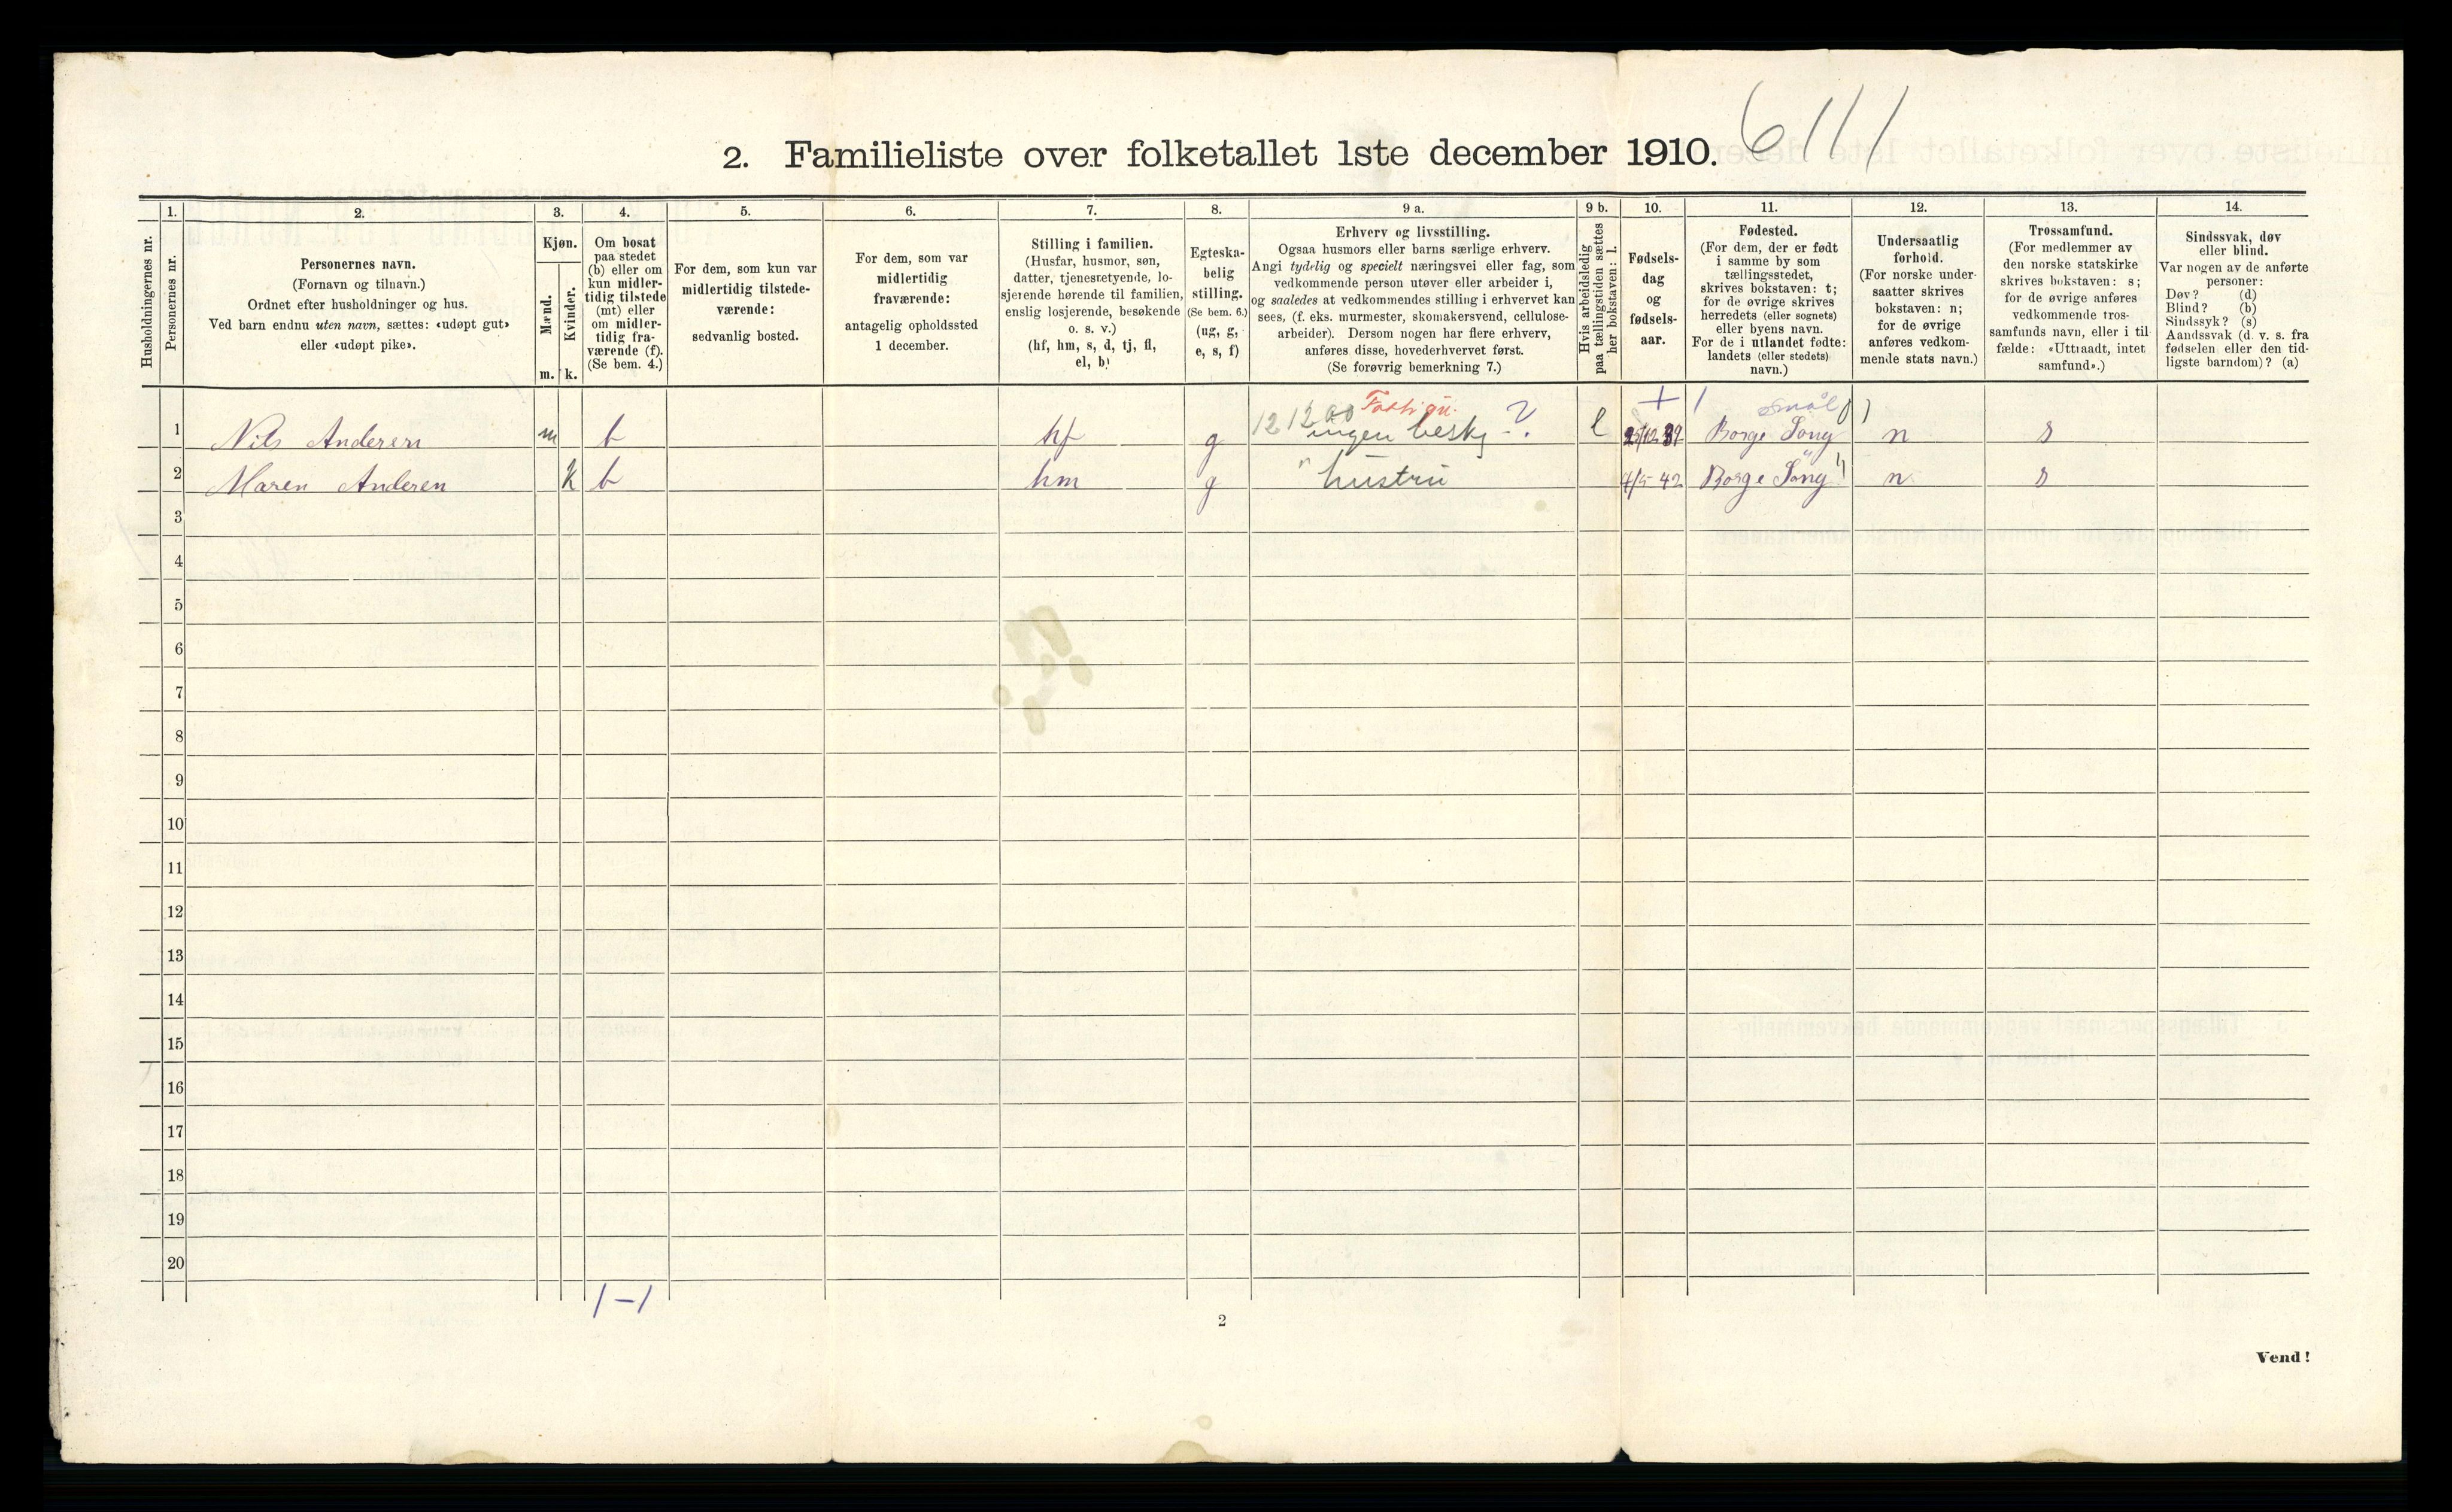 6111
2. Familieliste over folketallet 1ste december 1910.
Husholdningernes nr.
1.
Personernes nr.
2.
Personernes navn.
(Fornavn og tilnavn.)
Ordnet efter husholdninger og hus.
Ved barn endnu uten navn, sættes: «udøpt gut»
eller «udøpt pike».
3.
Kjøn.
Mænd.
Kvinder.
m. k.
4.
Om bosat
paa stedet
(b) eller om
kun midler-
tidig tilstede
(mt) eller
om midler-
tidig fra-
værende (f).
(Se bem. 4.)
5.
For dem, som kun var
midlertidig tilstede-
værende:
sedvanlig bosted.
6.
For dem, som var
midlertidig
fraværende:
antagelig opholdssted
1 december.
7.
Stilling i familien.
(Husfar, husmor, søn,
datter, tjenestetyende, lo-
sjerende hørende til familien,
enslig losjerende, besøkende
o. s. v.)
(hf, hm, s, d, tj, fl,
el, b)
8.
Egteska-
belig
stilling.
(Se bem. 6.)
(ug, g,
e, s, f)
9 a.
Erhverv og livsstilling.
Ogsaa husmors eller barns særlige erhverv.
Angi tydelig og specielt næringsvei eller fag, som
vedkommende person utøver eller arbeider i,
og saaledes at vedkommendes stilling i erhvervet kan
sees, (f. eks. murmester, skomakersvend, cellulose-
arbeider). Dersom nogen har flere erhverv,
anføres disse, hovederhvervet først.
(Se forøvrig bemerkning 7.)
9 b.
Hvis arbeidsledig
paa tællingstiden sættes
her bokstaven: l.
10.
Fødsels-
dag
og
fødsels-
aar.
11.
Fødested.
(For dem, der er født
i samme by som
tællingsstedet,
skrives bokstaven: t;
for de øvrige skrives
herredets (eller sognets)
eller byens navn.
For de i utlandet fødte:
landets (eller stedets)
navn.)
12.
Undersaatlig
forhold.
(For norske under-
saatter skrives
bokstaven: n;
for de øvrige
anføres vedkom-
mende stats navn.)
13.
Trossamfund.
(For medlemmer av
den norske statskirke
skrives bokstaven: s;
for de øvrige anføres
vedkommende tros-
samfunds navn, eller i til-
fælde: «Uttraadt, intet
samfund».)
14.
Sindssvak, døv
eller blind.
Var nogen av de anførte
personer:
Døv? (d)
Blind? (b)
Sindssyk? (s)
Aandssvak (d. v. s. fra
fødselen eller den tid-
ligste barndom)? (a)
1212 00 ? + 1 Smål )
1 Nils Andersen m b hf g ingen beskj l 25/12 Borge n s
2 Maren Andersen k b hm g " hustru 4/5-42 Borge n s
3
4
5
6
7
8
9
10
11
12
13
14
15
16
17
18
19
20
1 – 1
2
Vend!